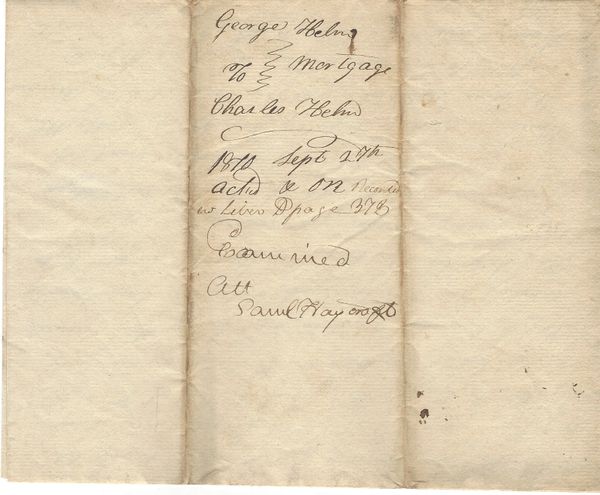 George Helm
To } Mortgage
Charles Helm
1810 Sept 27th
ackd & OR Recorded
in Liber D page 373
Examined
Att
Saml Haycraft